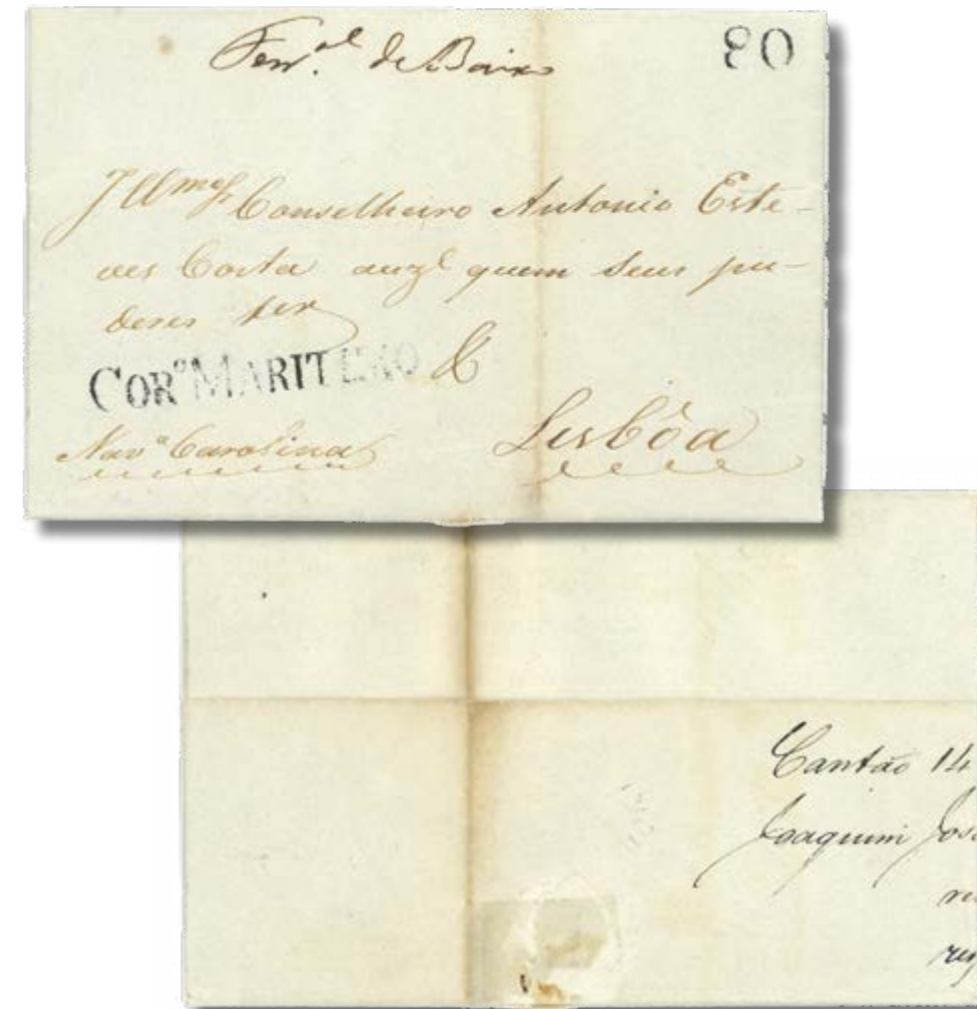 Ferr.al de Baixo
80
Illmo Sr Conselheiro Antonio Este-
ves Costa auz.e quem seus pu-
deres ter
&
CORº MARITIMO
Navº Carolina
Lisbôa
Cantão 14
Joaquim José